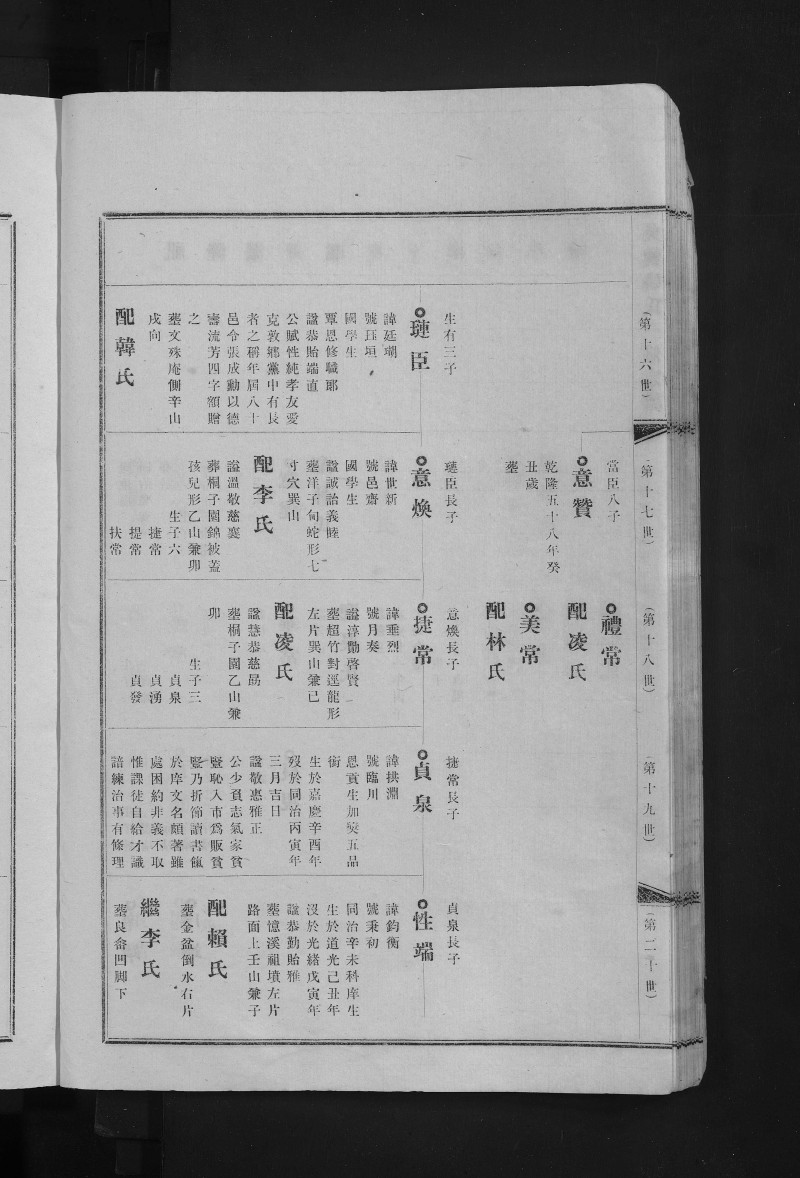 (第十六世)
生有三子
璉臣
諱廷瑚
號珏垣
國學生
覃恩修職郎
諡恭貽端直
公賦性純孝友愛
克敦鄉黨中有長
者之稱年屆八十
邑令張成勳以德
壽流芳四字額贈
之
塟文殊庵側辛山
戌向
配韓氏
(第十七世)
當臣八子
意贊
乾隆五十八年癸
丑歲
塟
璉臣長子
意煥
諱世新
號邑齋
國學生
諡誠詒義睦
塟洋子甸蛇形七
寸穴巽山
配李氏
諡溫敬慈襄
葬桐子園錦被蓋
孩兒形乙山兼卯
生子六
捷常
提常
扶常
(第十八世)
禮常
配凌氏
美常
配林氏
意煥長子
捷常
諱垂烈
號月奏
諡淳勤啓賢
塟超竹對逕龍形
左片巽山兼已
配凌氏
諡慧恭慈勗
塟桐子園乙山兼
卯
生子三
貞泉
貞湧
貞發
(第十九世)
捷常長子
貞泉
諱拱淵
號臨川
恩貢生加奬五品
銜
生於嘉慶辛酉年
歿於同治丙寅年
三月吉日
諡敬惠雅正
公少負志氣家貧
竪恥入市爲販貧
竪乃折節讀書餼
於庠文名頗著雖
處困約非義不取
惟課徒自給才識
諳練治事有條理
(第二十世)
貞泉長子
性端
諱鈞衡
號秉初
同治辛未科庠生
生於道光己丑年
沒於光緒戊寅年
諡恭勤貽雅
塟滰溪祖墳左片
路面上壬山兼子
配賴氏
塟金盆倒水右片
繼李氏
塟良畲凹脚下